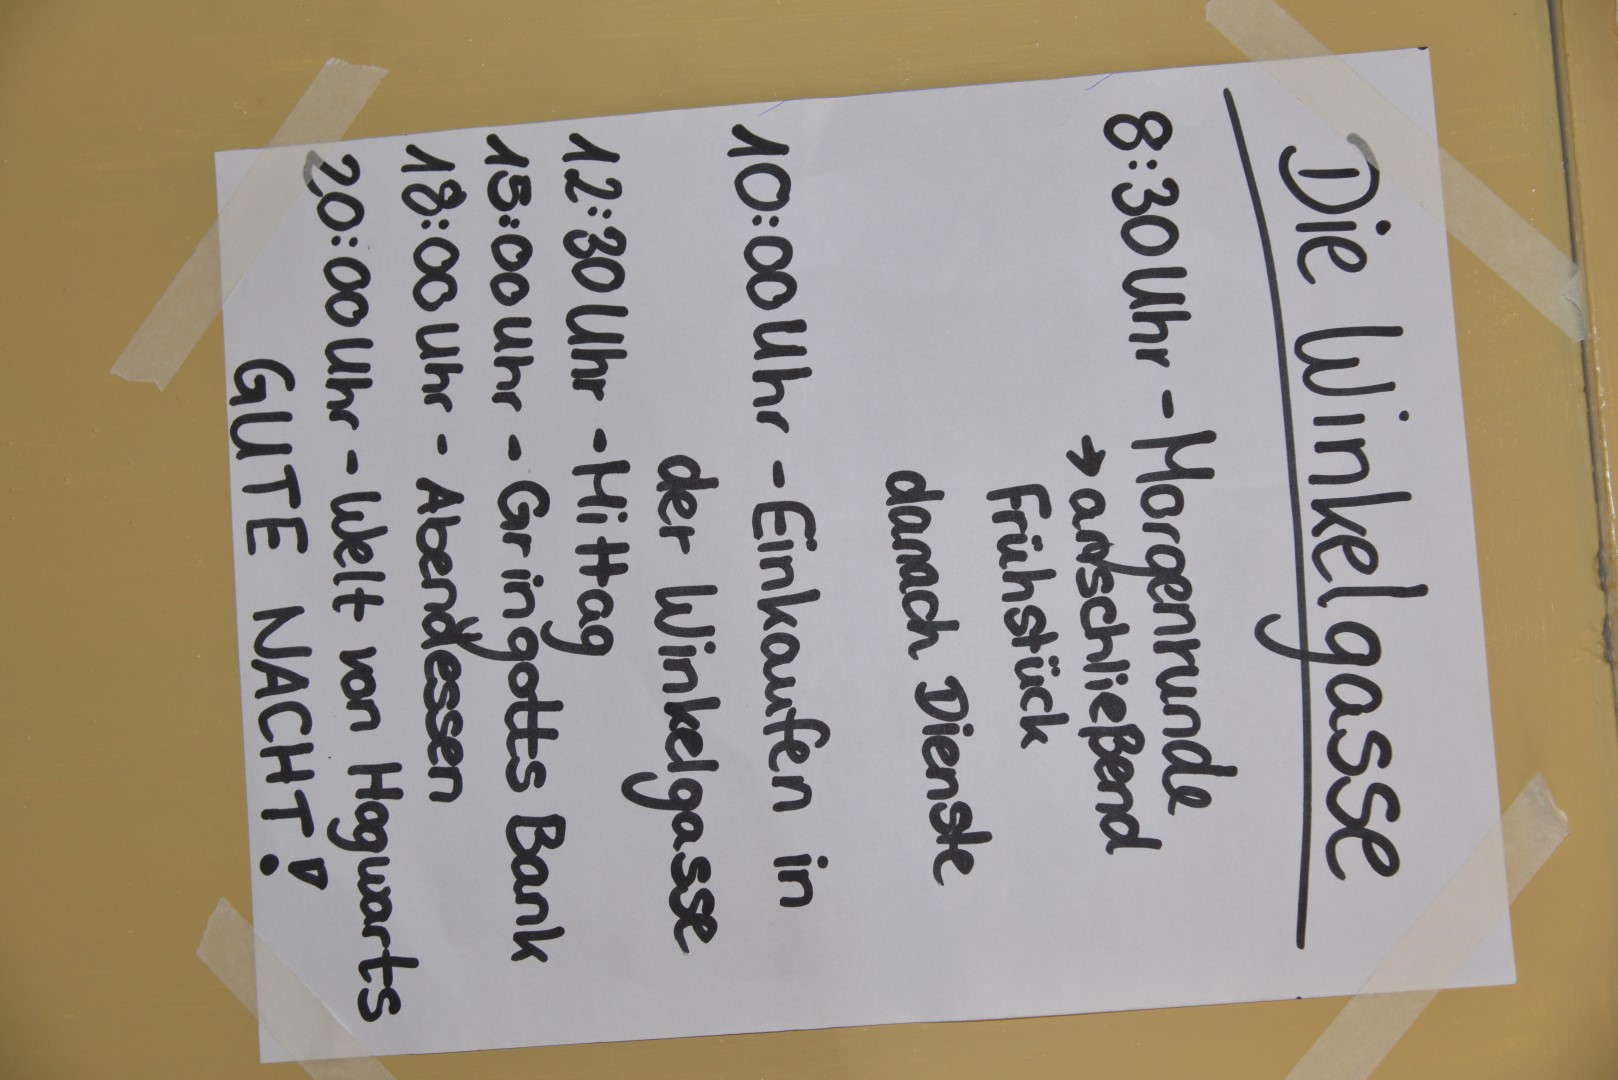 Die Winkelgasse
8:30 Uhr - Morgenrunde
→ anschließend
Frühstück
danach Dienste
10:00 Uhr - Einkaufen in
der Winkelgasse
12:30 Uhr - Mittag
15:00 Uhr - Gringotts Bank
18:00 Uhr - Abendessen
20:00 Uhr - Welt von Hogwarts
GUTE NACHT!